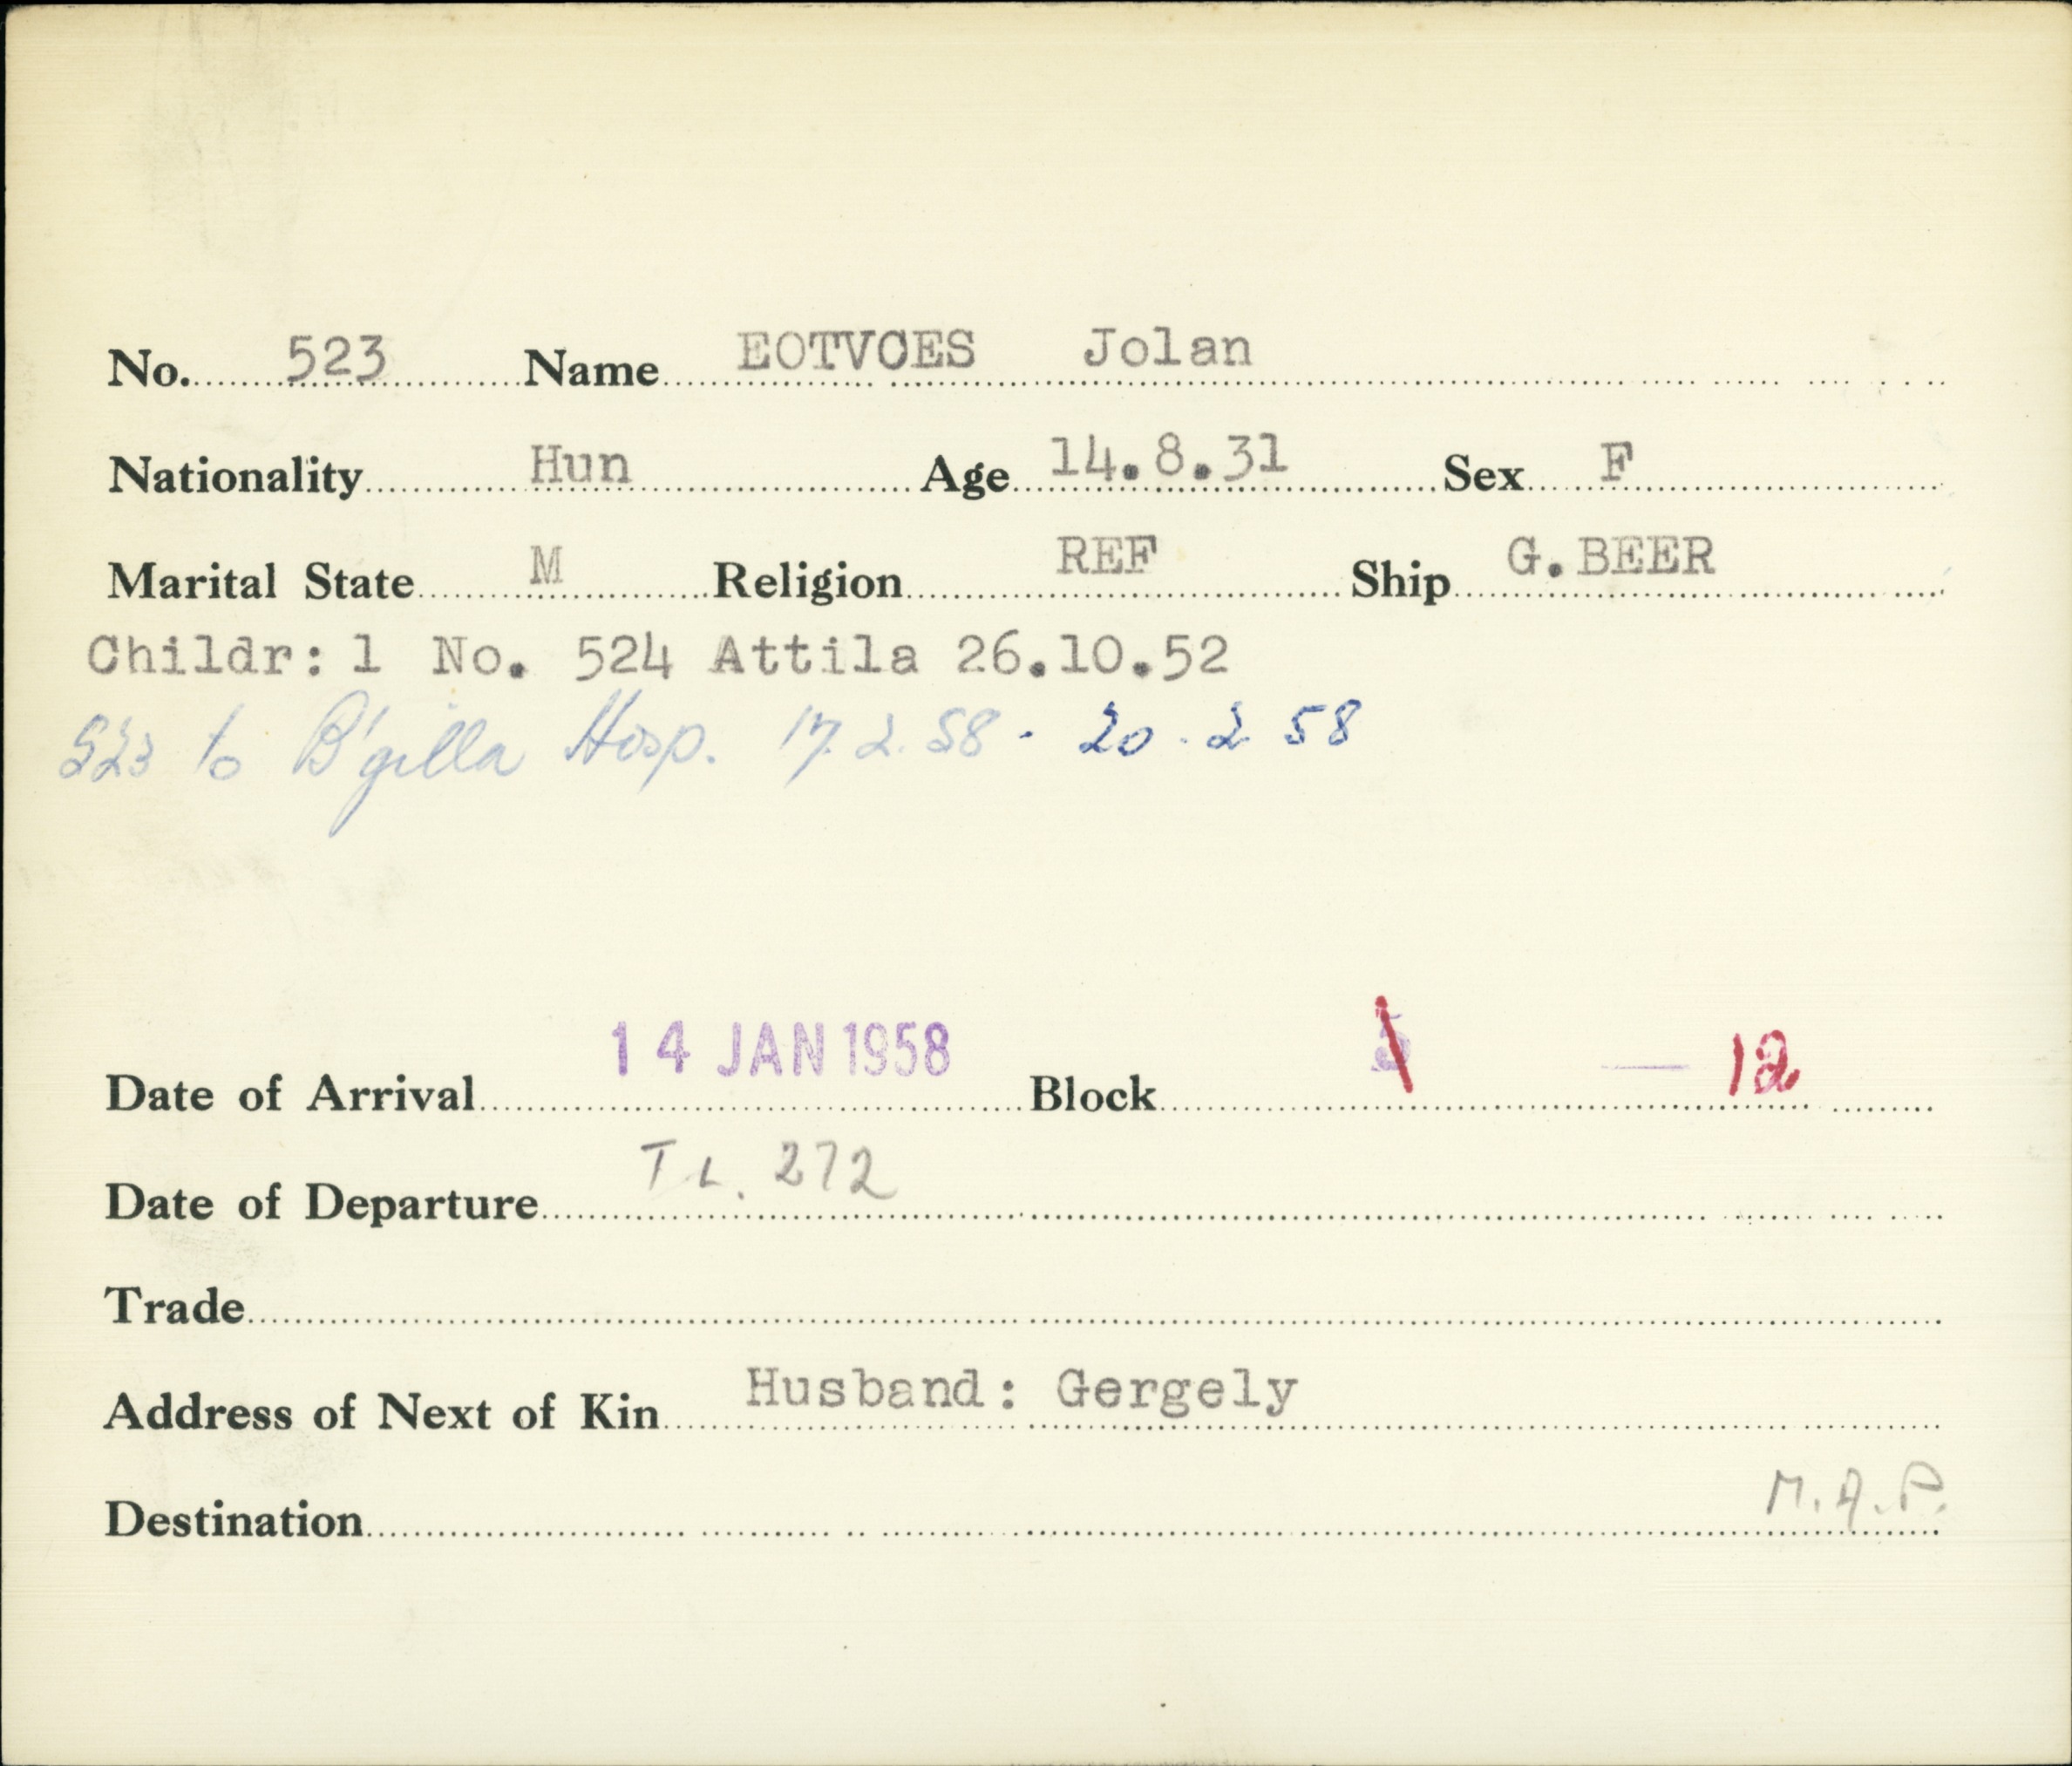 No. 523 Name EOTVOES Jolan
Nationality Hun Age 14.8.31 Sex F
Marital State M Religion REF Ship G.BEER
Childr: 1 No. 524 Attila 26.10.52
523 to B'gilla Hosp. 17.2.58 - 20.2.58
Date of Arrival 14 JAN 1958 Block 5 — 12
Date of Departure T.L. 272
Trade
Address of Next of Kin Husband: Gergely
Destination M.A.P.